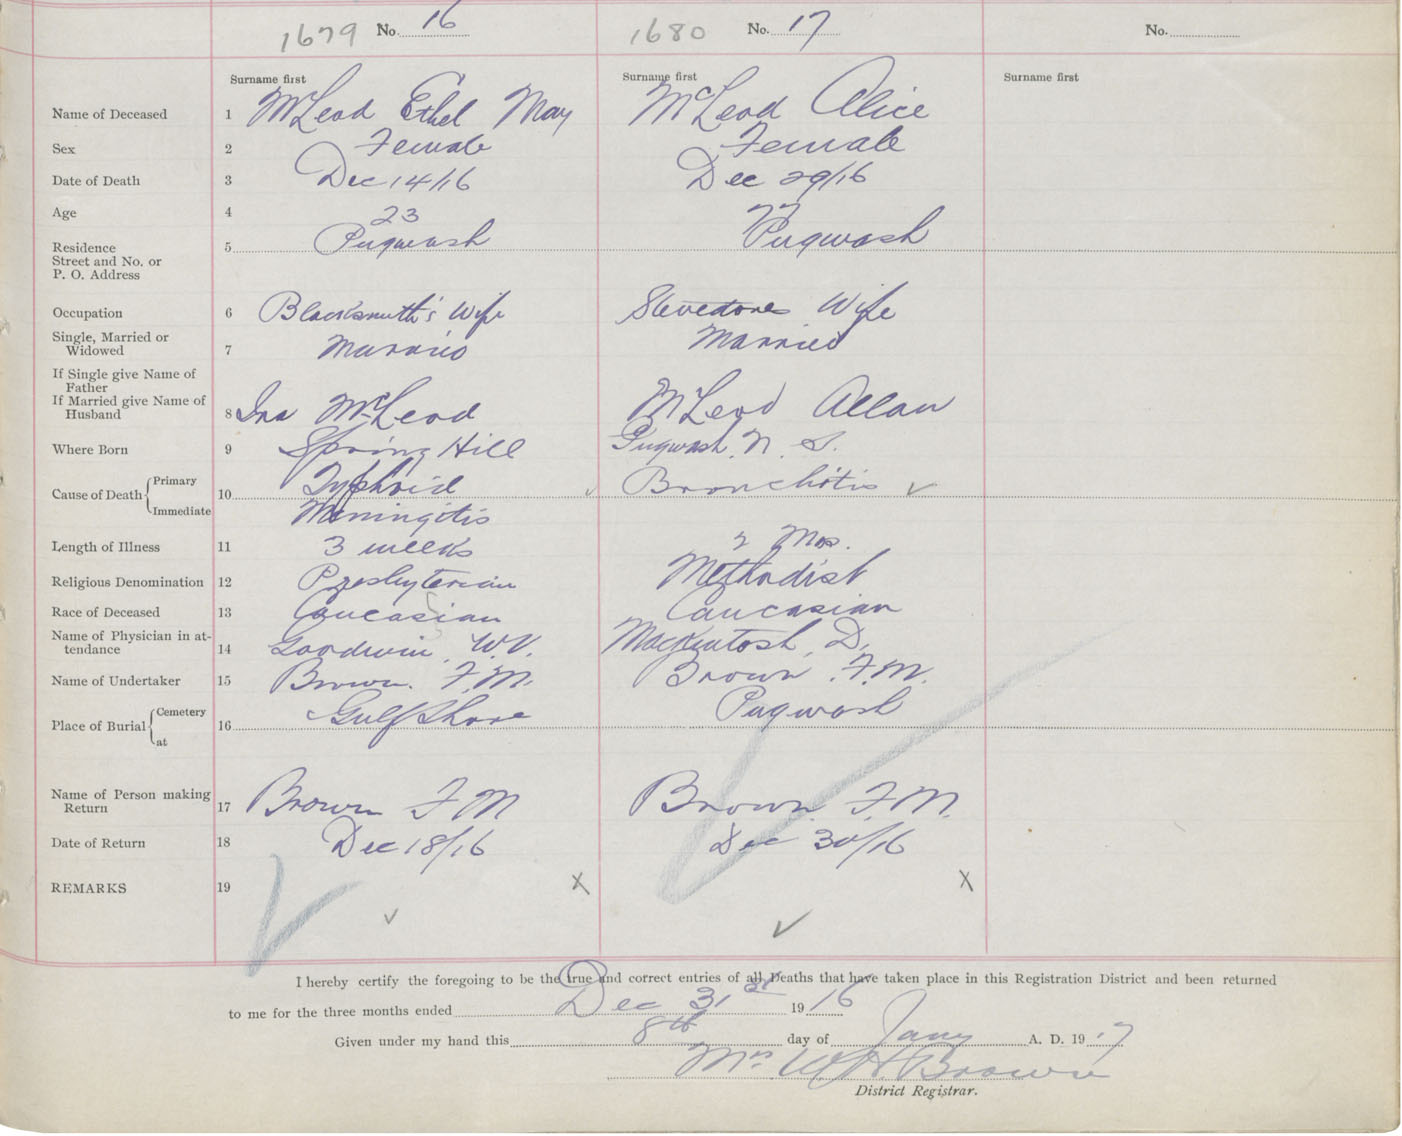 1679 No. 16 1680 No. 17 No.
Surname first Surname first Surname first
Name of Deceased 1 McLeod Ethel May McLeod Alice
Sex 2 Female Female
Date of Death 3 Dec 14/16 Dec 29/16
Age 4 23 77
Residence
Street and No. or
P. O. Address 5 Pugwash Pugwash
Occupation 6 Blacksmith's Wife Stevedores Wife
Single, Married or
Widowed 7 Married Married
If Single give Name of
Father
If Married give Name of
Husband 8 Ira McLeod McLeod Allan
Where Born 9 Spring Hill Pugwash, N. S.
Cause of Death Primary 10 Typhoid Bronchitis
Immediate Meningitis
Length of Illness 11 3 weeks 2 Mos.
Religious Denomination 12 Presbyterian Methodist
Race of Deceased 13 Caucasian Caucasian
Name of Physician in at-
tendance 14 Goodwin, W.V. MacKintosh, D.
Name of Undertaker 15 Brown. F.M. Brown. F.M.
Place of Burial Cemetery 16 Gulf Shore Pugwash
at
Name of Person making
Return 17 Brown F M Brown. F.M.
Date of Return 18 Dec 18/16 Dec 30/16
REMARKS 19 X X
I hereby certify the foregoing to be the true and correct entries of all Deaths that have taken place in this Registration District and been returned
to me for the three months ended Dec 31st 1916
Given under my hand this 8th day of Jany A. D. 1917
Mrs. W. H. Brown
District Registrar.